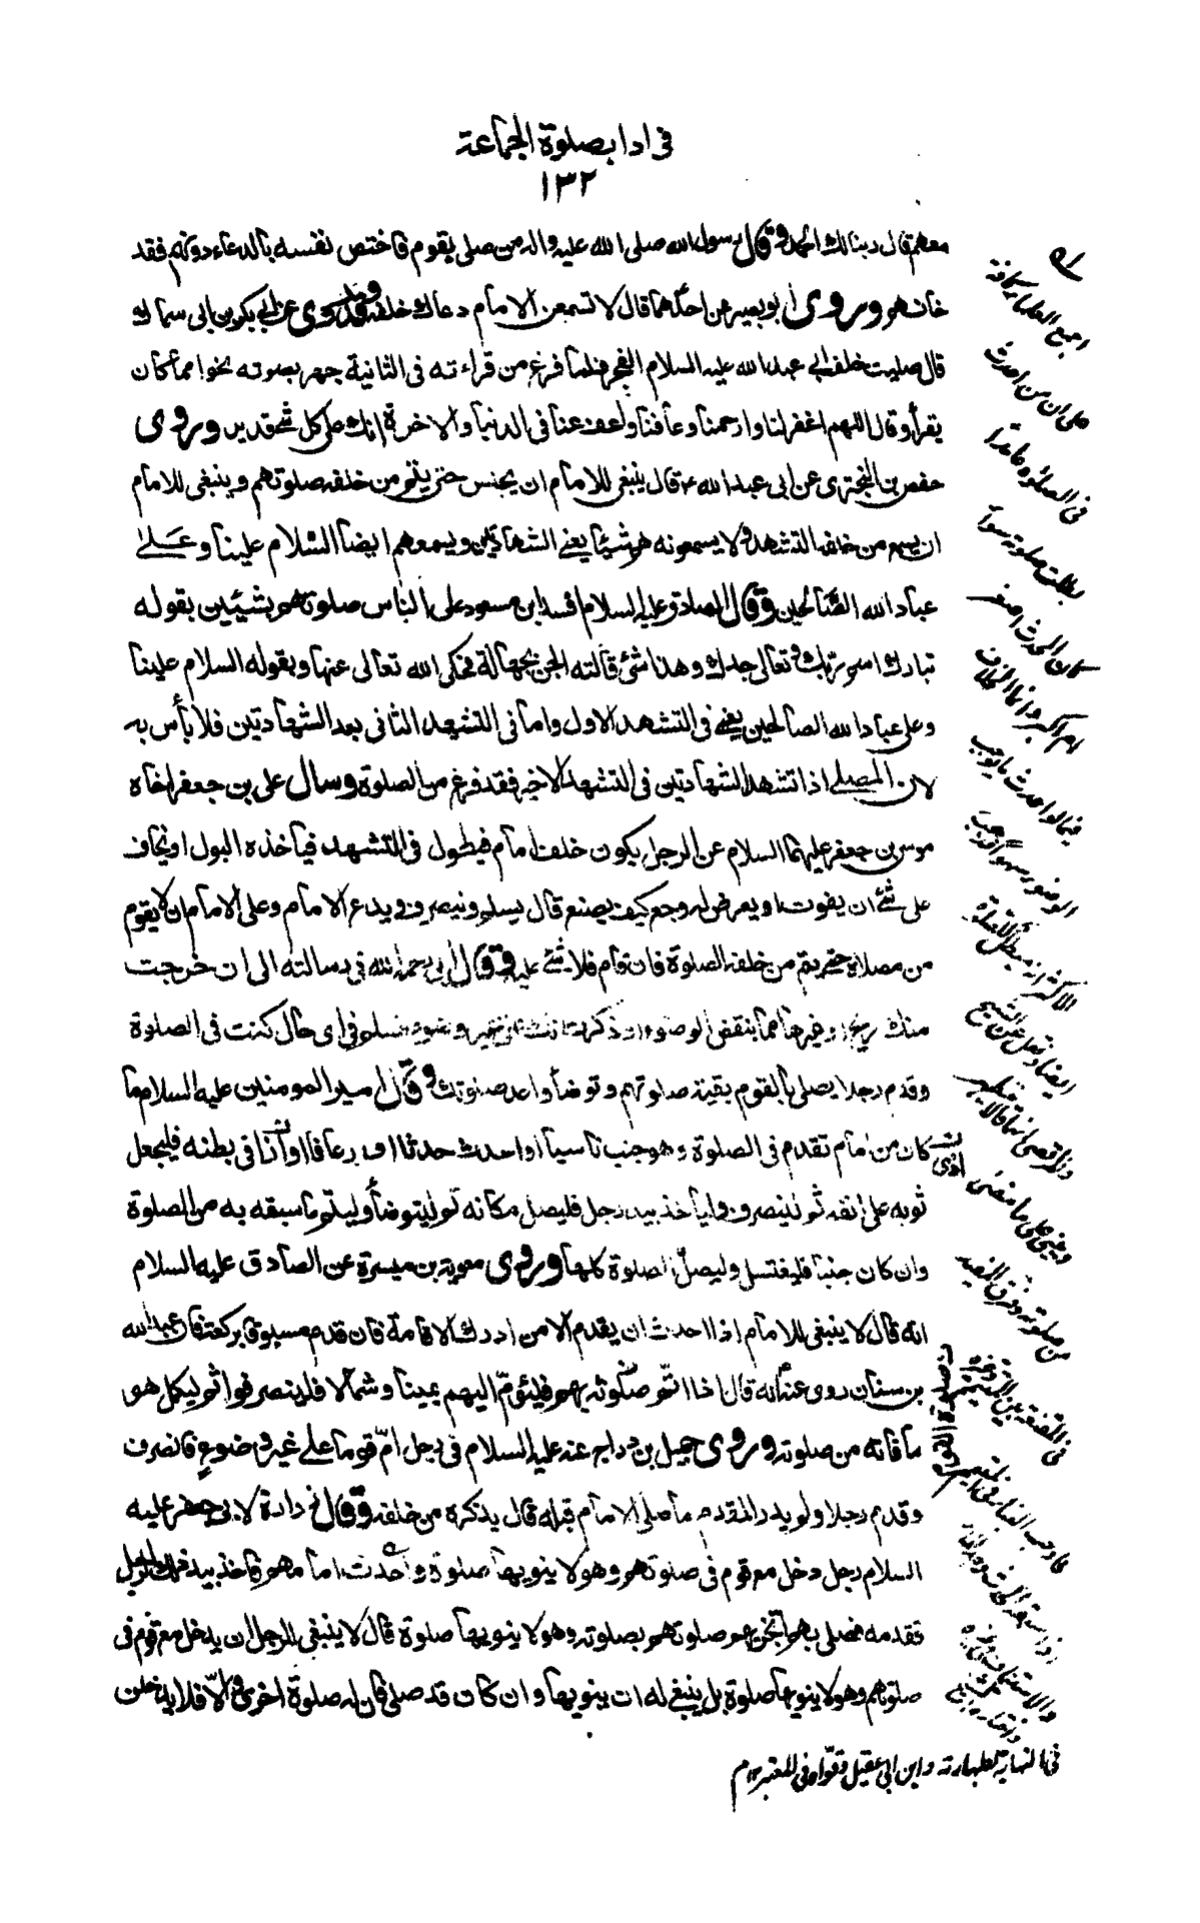 في اداب صلوة الجماعة
١٣٢
معهم قال ربنا لك الحمد وقال رسول الله صلى الله عليه واله من صلى بقوم فاختص نفسه بالدعاء دونهم فقد
خانهم وروى ابو بصير عن احدهما قال لا تسمعن الامام دعاك خلفه وروى عن ابي بكر بن ابي سماك
قال صليت خلف ابي عبد الله عليه السلام الفجر فلما فرغ من قراءته في الثانية جهر بصوته نحوا مما كان
يقرأ وقال اللهم اغفر لنا وارحمنا وعافنا واعف عنا في الدنيا والاخرة انك على كل شئ قدير وروى
حفص بن البختري عن ابي عبد الله ع قال ينبغي للامام ان يجلس حتى يتم من خلفه صلوتهم وينبغي للامام
ان يسمع من خلفه التشهد ولا يسمعونه هم شيئا يعني الشهادتين ويسمعهم ايضا السلام علينا وعلى
عباد الله الصالحين وقال الصادق عليه السلام افسد ابن مسعود على الناس صلوتهم بشيئين بقوله
تبارك اسم ربك وتعالى جدك وهذا شئ قالته الجن بجهالة فحكى الله تعالى عنها وبقوله السلام علينا
وعلى عباد الله الصالحين يعني في التشهد الاول واما في التشهد الثاني بعد الشهادتين فلا بأس به
لان المصلي اذا تشهد الشهادتين في التشهد الاخير فقد فرغ من الصلوة وسال علي بن جعفر اخاه
موسى بن جعفر عليهما السلام عن الرجل يكون خلف امام فيطول في التشهد فيأخذه البول او يخاف
على شئ ان يفوت او يعرض له وجع كيف يصنع قال يسلم وينصرف ويدع الامام وعلى الامام ان لا يقوم
من مصلاه حتى يتم من خلفه الصلوة فان قام فلا شئ عليه وقال ابي رحمه الله في رسالته الى ان خرجت
منك ريح او غيرها مما ينقض الوضوء او ذكرت انك على غير وضوء فسلم في اي حال كنت في الصلوة
وقدم رجلا يصلي بالقوم بقية صلوتهم وتوضأ واعد صلوتك وقال امير المومنين عليه السلام ما
كان من امام تقدم في الصلوة وهو جنب ناسيا او احدث حدثا او رعافا او ازا في بطنه فليجعل
ثوبه على انفه ثم لينصرف وليأخذ بيد رجل فليصل مكانه ثم ليتوضأ وليتم ما سبقه به من الصلوة
وان كان جنبا فليغتسل وليصل الصلوة كلها وروى معوية بن ميسرة عن الصادق عليه السلام
انه قال لا ينبغي للامام اذا احدث ان يقدم الا من ادرك الاقامة فان قدم مسبوقا بركعة فان عبد الله
بن سنان روى عنه انه قال اذا اتم صلوته بهم فليؤم اليهم يمينا وشمالا فلينصرفوا ثم ليكمل هو
ما فاته من صلوته وروى جميل بن دراج عنه عليه السلام في رجل ام قوما على غير وضوء فانصرف
وقدم رجلا ولم يدر المقدم ما صلى الامام قبله قال يذكره من خلفه وقال زرارة لابي جعفر عليه
السلام رجل دخل مع قوم في صلوتهم وهو لا ينويها صلوة واحدث امامهم فاخذ بيد ذلك الرجل
فقدمه فصلى بهم اتجزيهم صلوتهم بصلوته وهو لا ينويها صلوة قال لا ينبغي للرجل ان يدخل مع قوم في
صلوتهم وهو لا ينويها صلوة بل ينبغي له ان ينويها وان كان قد صلى فان له صلوة اخرى والا فلا يدخلن
اجمع العلماء كافة
على ان من احدث
في الصلوة عامدا
بطلت صلوته سواء
كان الحدث اصغر
ام اكبر وانما الخلاف
فيما لو احدث ما يوجب
الوضوء سهوا
وبنى على ما مضى
من صلوته وفرق المفيد
في النهاية لطهارته وابن ابي عقيل وقواه في المعتبر ١٢ م